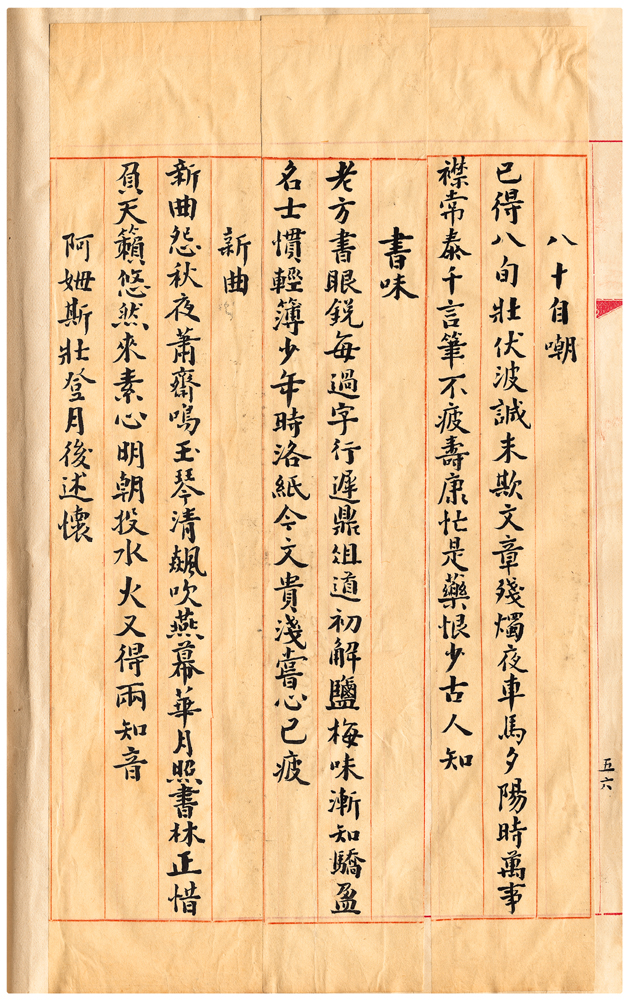 八十自嘲
已得八旬壯伏波誠未欺文章殘燭夜車馬夕陽時萬事
襟常泰千言筆不疲壽康忙是藥恨少古人知
書味
老方書眼銳每過字行遲鼎俎道初解鹽梅味漸知驕盈
名士慣輕簿少年時洛紙令文貴淺嘗心已疲
新曲
新曲怨秋夜蕭齋鳴玉琴清飆吹燕幕華月照書林正惜
負天籟悠然來素心明朝投水火又得兩知音
阿姆斯壯登月後述懷
五六